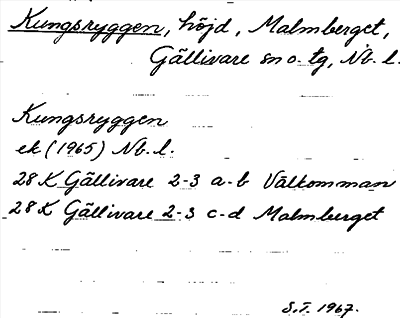 Kungsryggen, höjd, Malmberget,
Gällivare sn o. tg, Nb. l.
Kungsryggen
ek (1965) Nb. l.
28 K Gällivare 2-3 a-b Välkomman
28 K Gällivare 2-3 c-d Malmberget
S.T. 1967.